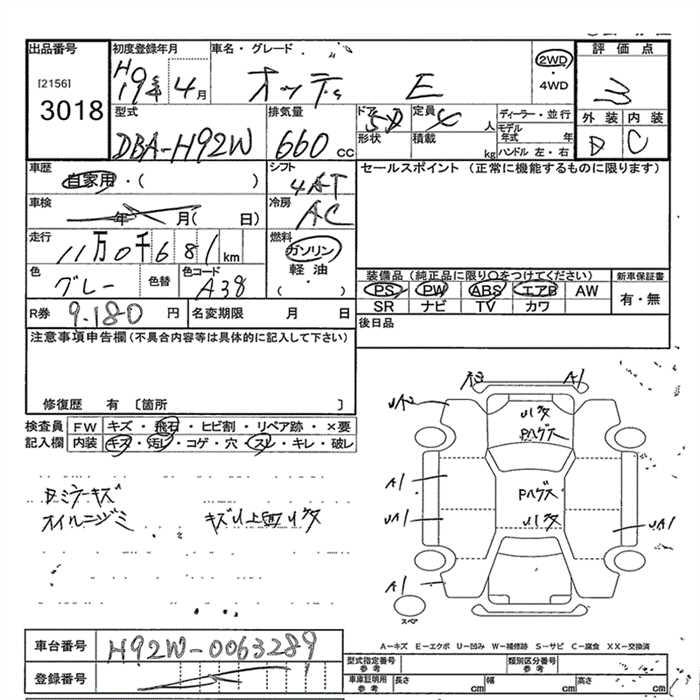 出品番号 初度登録年月 車名・グレード 評価点
[2156] H19年 4月 オッティ E 2WD・4WD 3
3018
型式 排気量 ドア 定員 ディーラー・並行 外装 内装
DBA-H92W 660 CC 5D 4人 モデル年式 年 D C
形状 積載 kg ハンドル 左・右
車歴 シフト セールスポイント (正常に機能するものに限ります)
自家用・( ) 4AT
車検 冷房
年 月( 日) AC
走行 燃料
11万0千681km ガソリン
軽油
( ・ )
色 色替 色コード 装備品(純正品に限り○をつけてください) 新車保証書
グレー A38 PS PW ABS エアB AW 有・無
SR ナビ TV カワ
R券 9.180円 名変期限 月 日 後日品
注意事項申告欄(不具合内容等は具体的に記入して下さい)
修復歴 有 〔箇所 〕
検査員 FW キズ・飛石・ヒビ割・リペア跡・×要
記入欄 内装 キズ・汚レ・コゲ・穴・スレ・キレ・破レ
A1
UA2
Pハゲス
A1
Pハゲス
UA1 UA1
A1
スペア
ミラーキズ
オイルニジミ キズ
A―キズ E―エクボ U―凹み W―補修跡 S―サビ C―腐食 XX―交換済
車台番号 H92W-0063289
登録番号
型式指定番号 参考 類別区分番号 参考
車庫証明用 参考 長さ cm 幅 cm 高さ cm